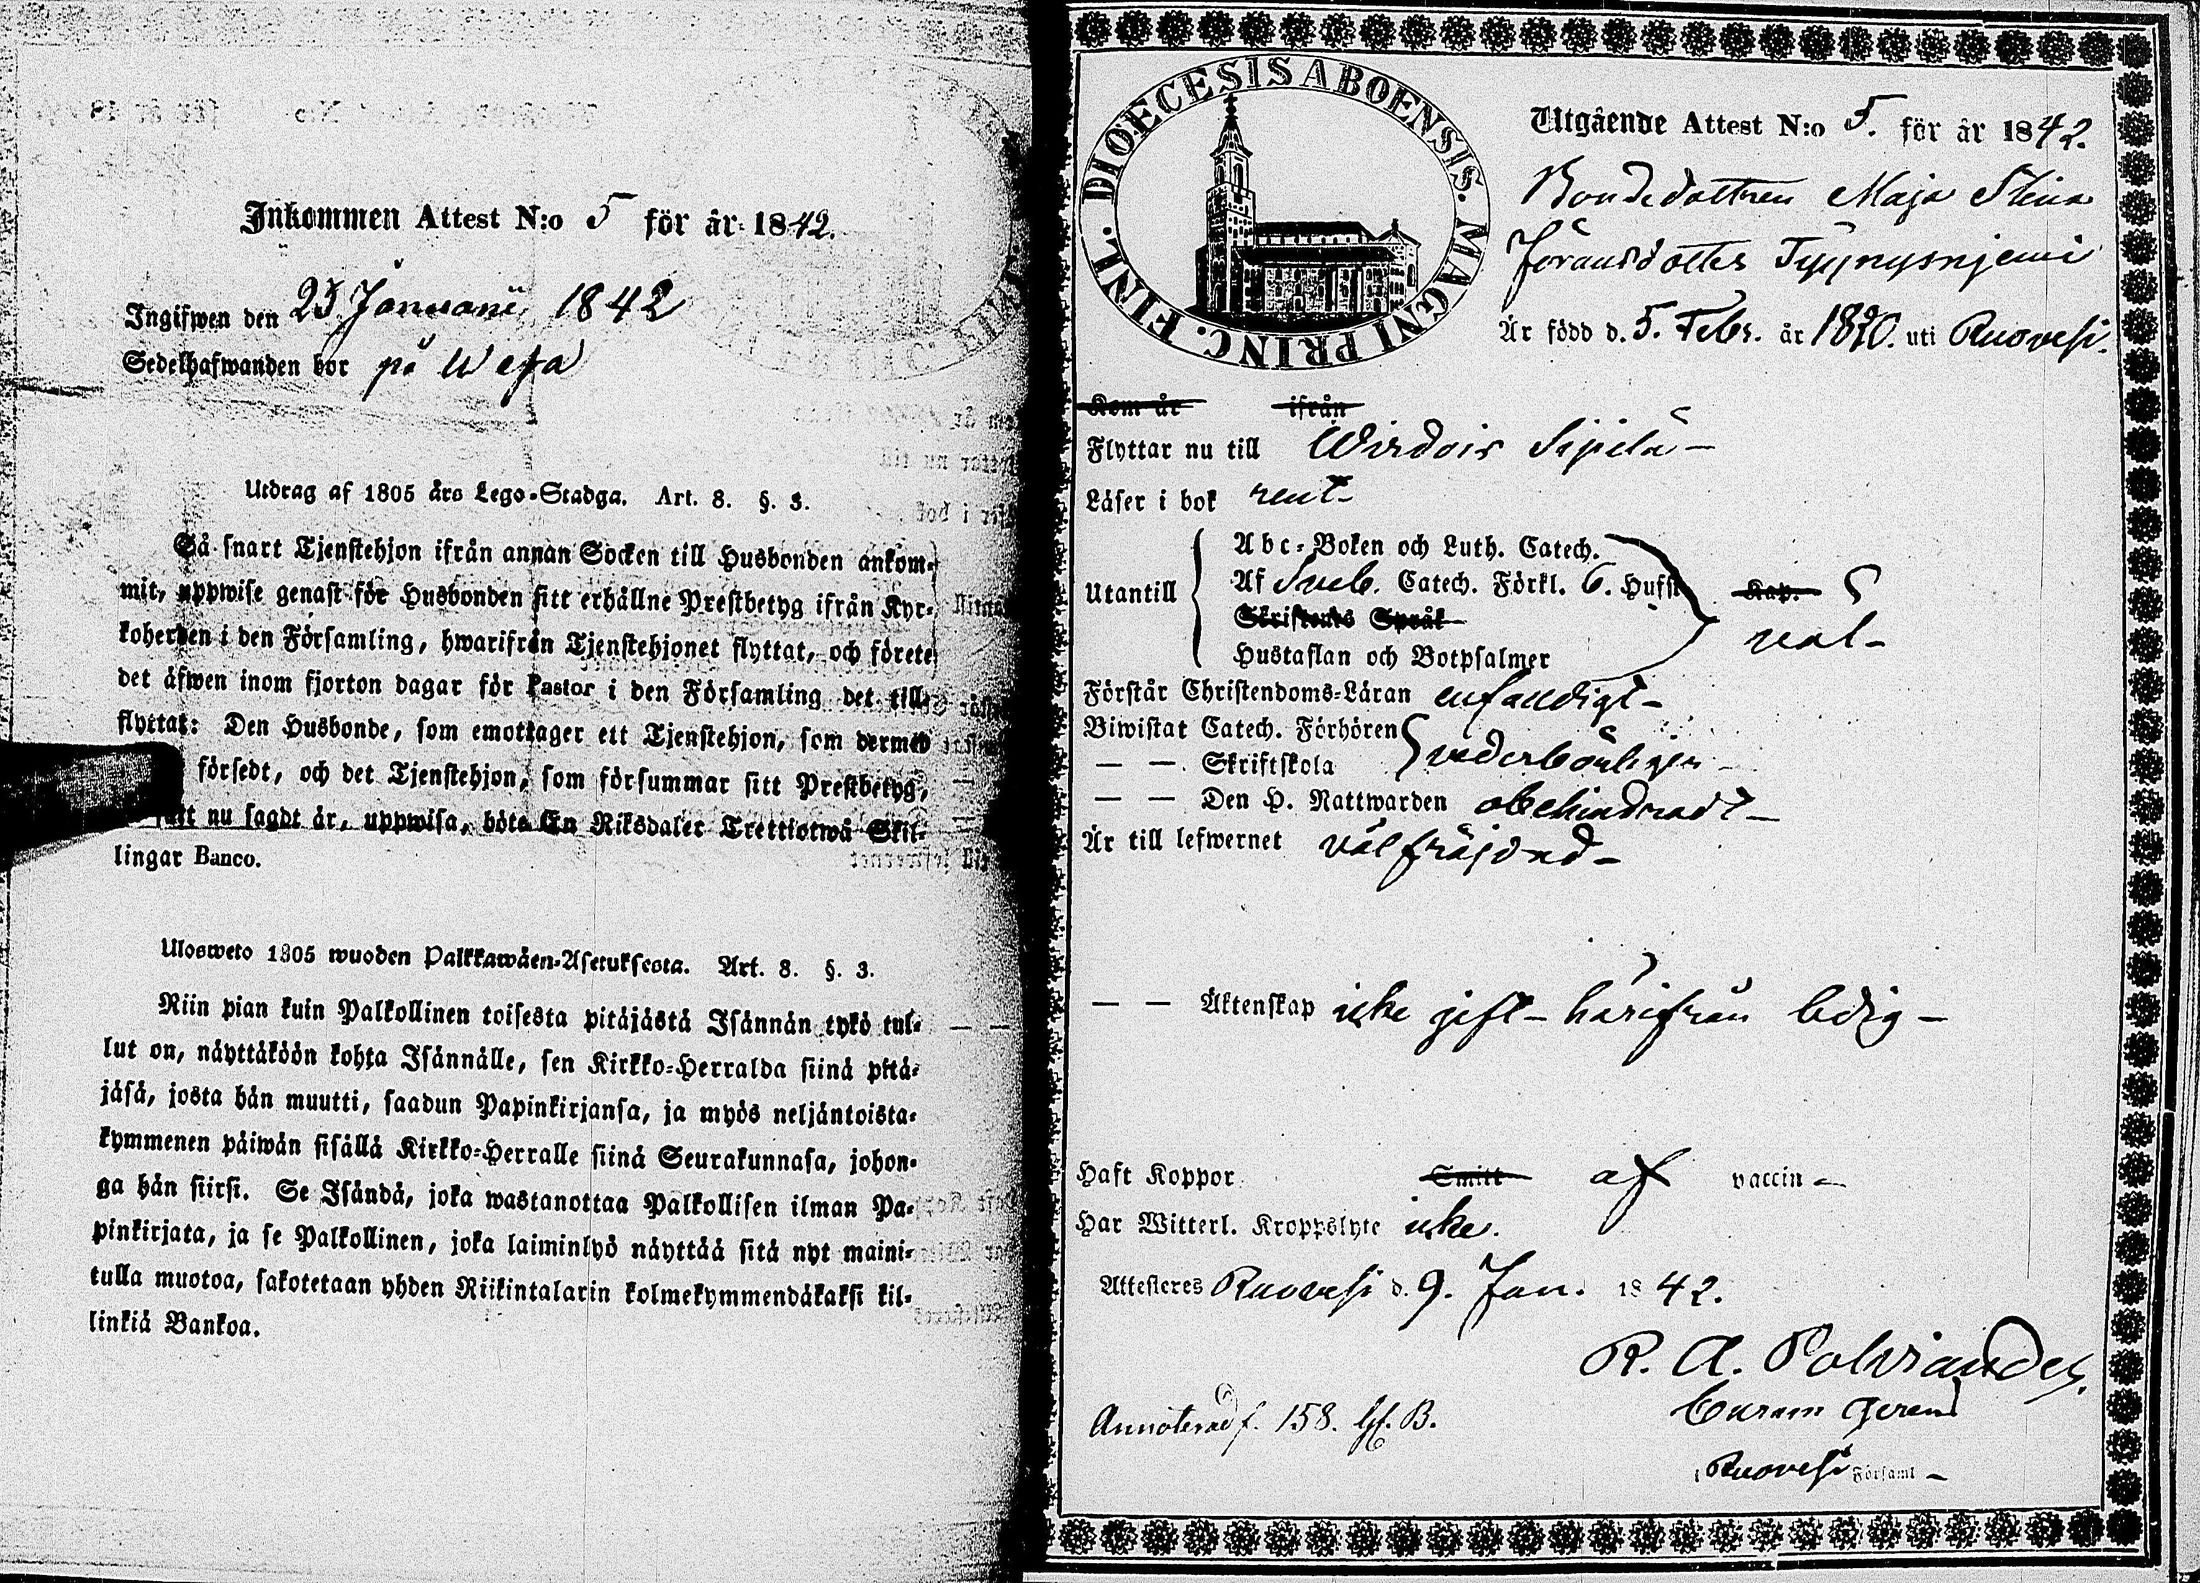 Inkommen Attest N:o 5 för år 1842.
Ingifwen den 25 Januarii 1842
Sedelhafwanden bor på Wefa
Utdrag af 1805 års Lego-Stadga. Art. 8. §. 3.
Så snart Tjenstehjon ifrån annan Socken till Husbonden ankom-
mit, uppwise genast för Husbonden sitt erhållne Prestbetyg ifrån Kyr-
koherden i den Församling, hwarifrån Tjenstehjonet flyttat, och förete
det äfwen inom fjorton dagar för Pastor i den Församling det till-
flyttat: Den Husbonde, som emottager ett Tjenstehjon, som dermed
försedt, och det Tjenstehjon, som försummar sitt Prestbetyg,
nu sagdt är, uppwisa, böte En Riksdaler Trettiotwå Skil-
lingar Banco.
Ulosweto 1805 wuoden Palkkawäen-Asetuksesta. Art. 8. §. 3.
Niin pian kuin Palkollinen toisesta pitäjästä Isännän tykö tul-
lut on, näyttäköön kohta Isännälle, sen Kirkko-Herralda siinä pitä-
jäsä, josta hän muutti, saadun Papinkirjansa, ja myös neljäntoista-
kymmenen päiwän sisällä Kirkko-Herralle siinä Seurakunnasa, johon-
ga hän siirsi. Se Isändä, joka wastanottaa Palkollisen ilman Pa-
pinkirjata, ja se Palkollinen, joka laiminlyö näyttää sitä nyt maini-
tulla muotoa, sakotetaan yhden Riikintalarin kolmekymmendäkaksi kil-
linkiä Bankoa.
FINL. DIOECESIS ABOENSIS. MAGNI PRINC.
Utgående Attest N:o 5. för år 1842.
Bondedottren Maja Stina
Göransdotter Tyynysnjemi
Är född d. 5. Febr. år 1820. uti Ruovesi.
Kom år ifrån
Flyttar nu till Wirdois Sipilä –
Läser i bok rent –
Utantill
Abc-Boken och Luth. Catech.
Af Sveb. Catech. Förkl. 6. Hufst. Kap.
Skriftenes Språk
väl –
Hustaflan och Botpsalmer
Förstår Christendoms-Läran enfaldigt –
Biwistat Catech. Förhören
— — Skriftskola vederbörligen –
— — Den H. Nattwarden obehindradt –
Är till lefwernet välfräjdad –
— — Äktenskap icke gift – härifrån ledig –
Haft Koppor Smitt af vaccin –
Har Witterl. Kroppslyte icke.
Attesteres Ruovesi d. 9. Jan. 1842.
R. A. Polviander,
Curam Gerens
i Ruovesi Församl –
Annoterad f. 158. Gf. B.